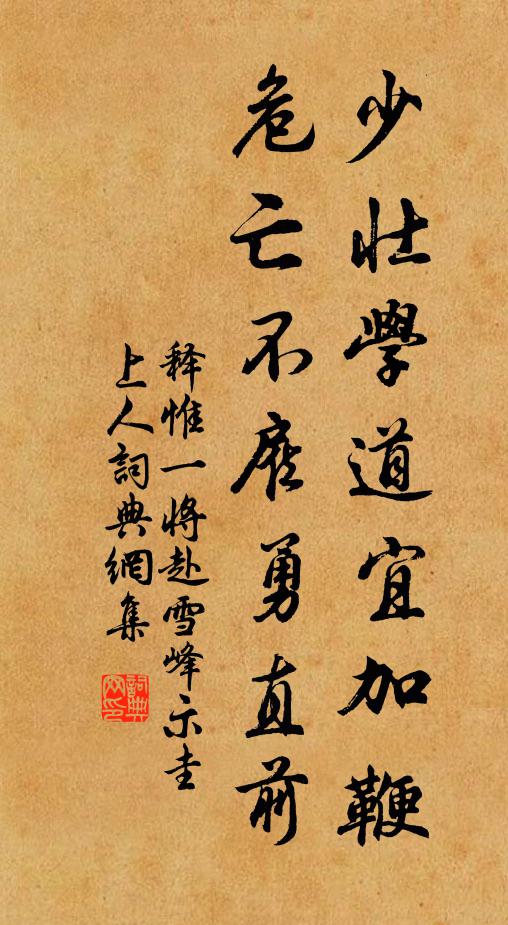 少壯學道宜加鞭
危亡不顧勇直前
释惟一將赴雪峰示圭
上人詞典網集
詞典
网印